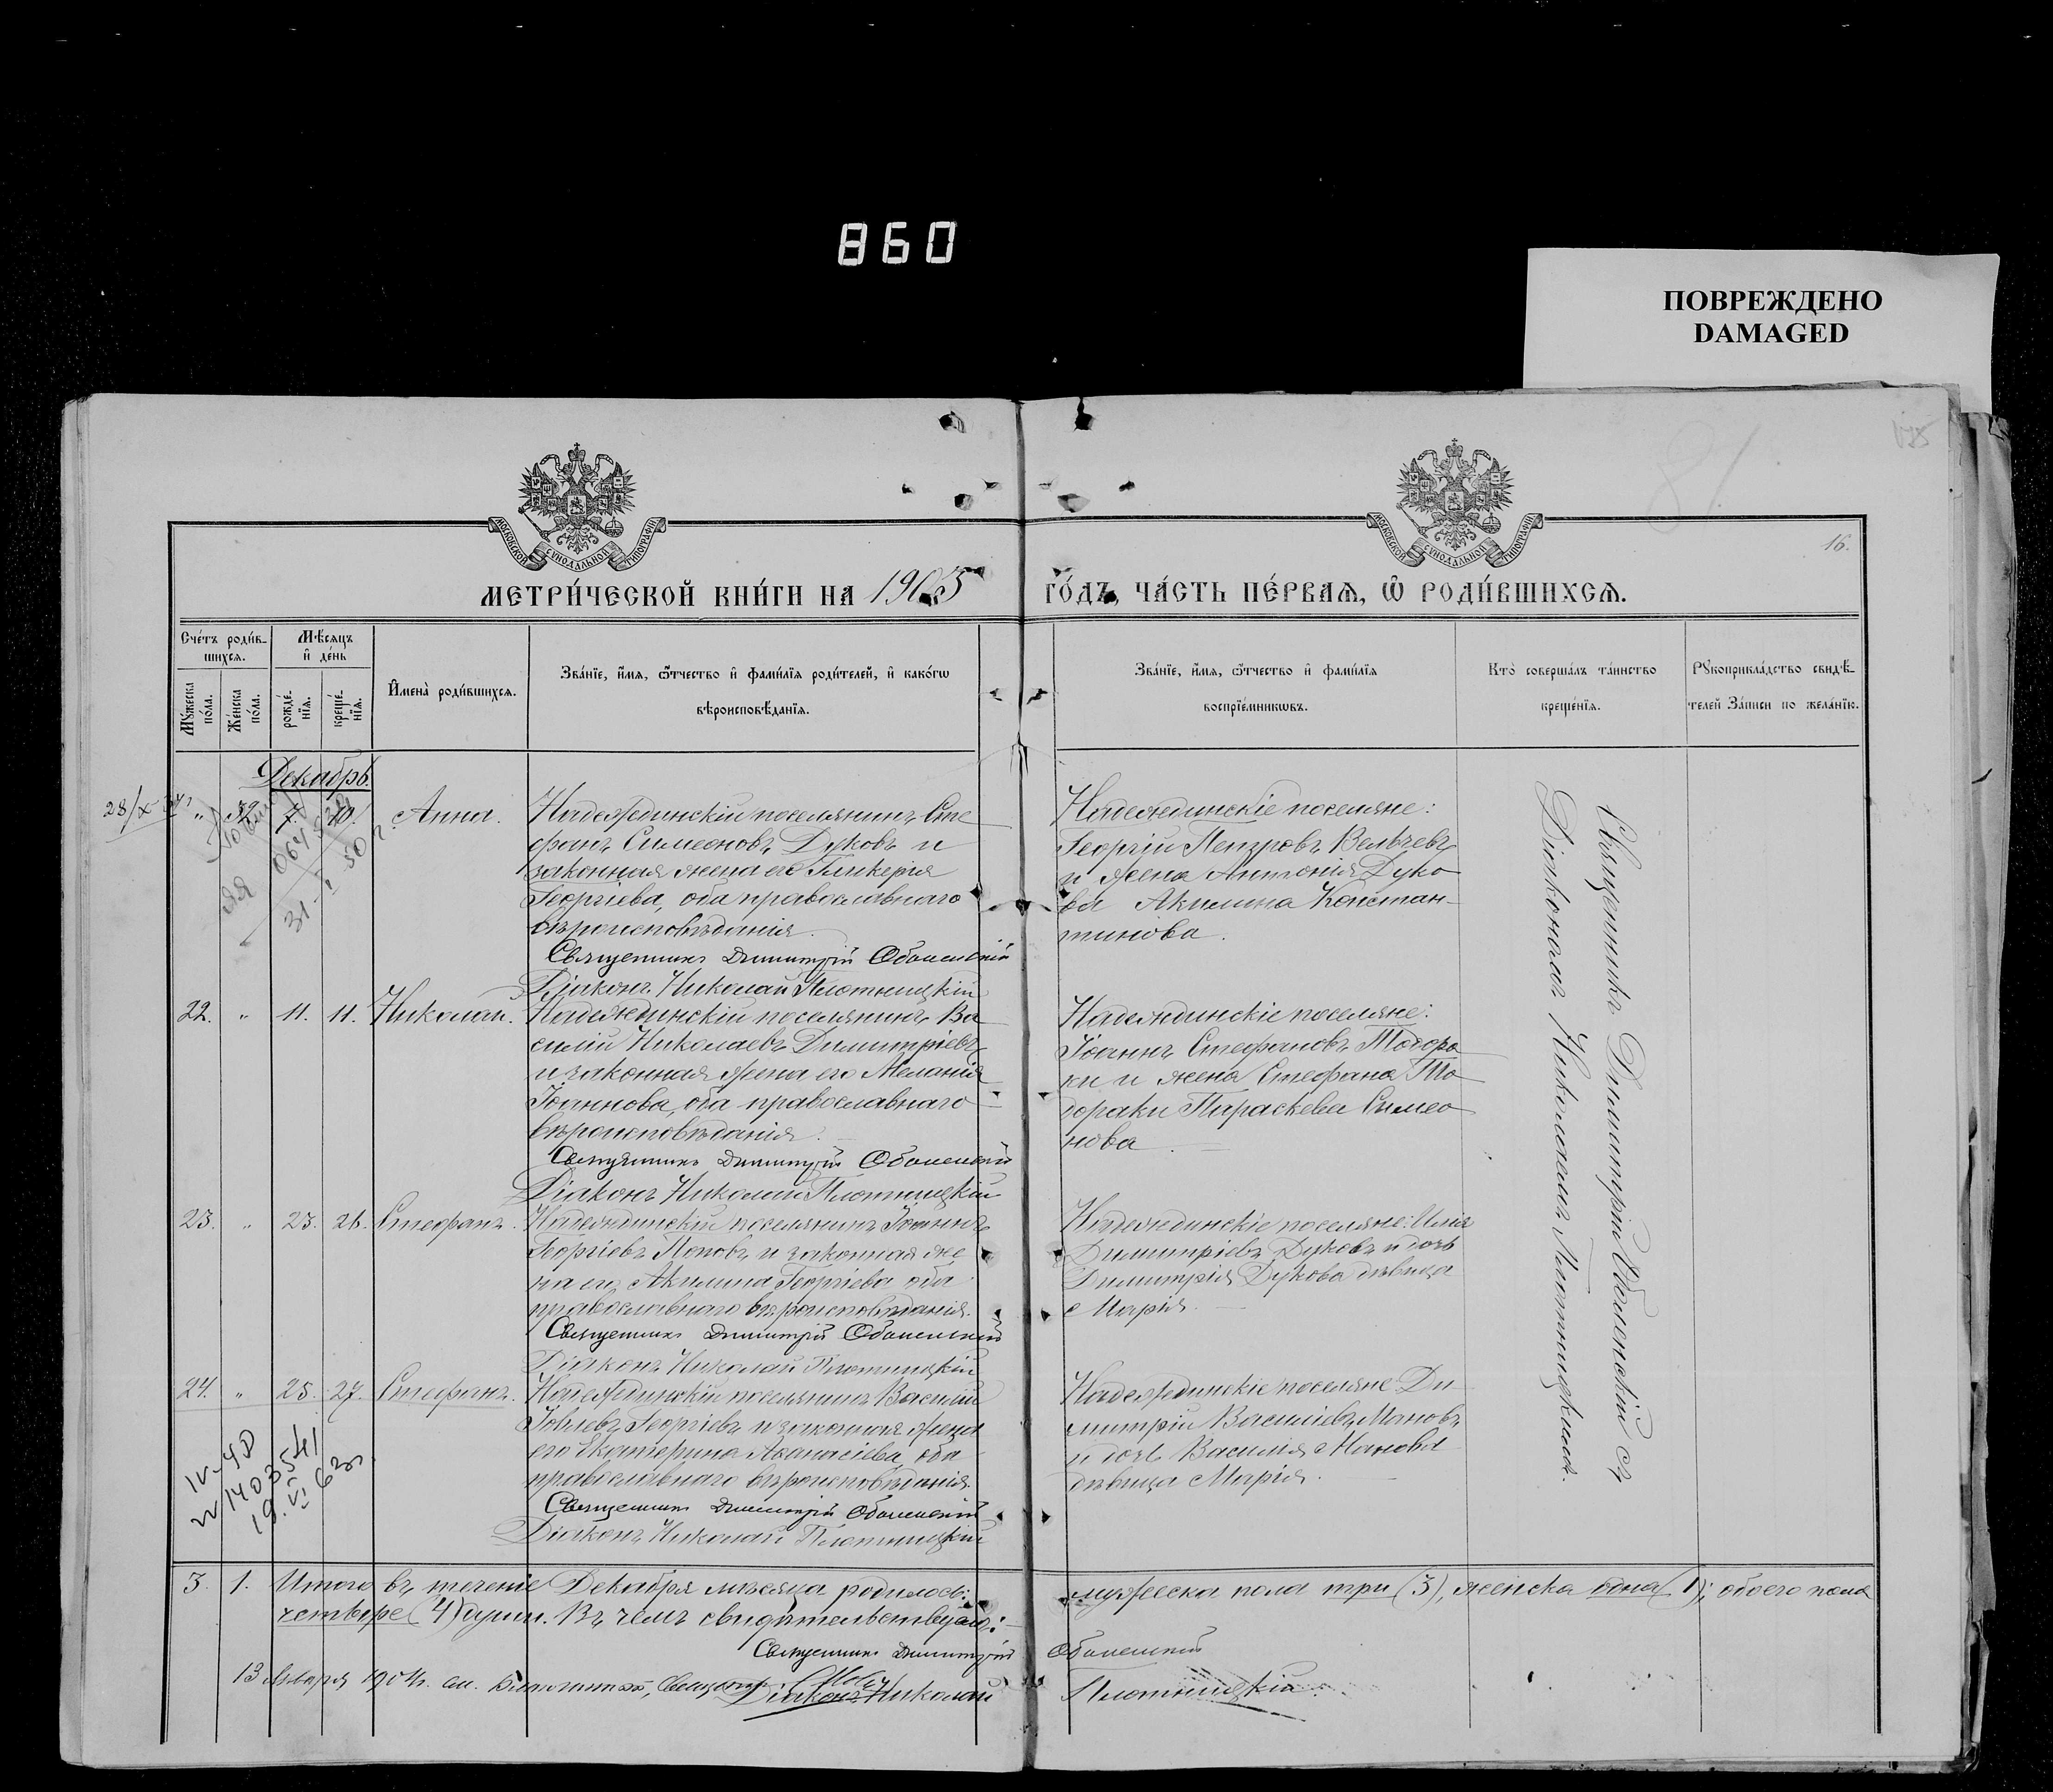 860
ПОВРЕЖДЕНО
DAMAGED
МОСКОВСКОЙ СУНОДАЛЬНОЙ ТИПОГРАФІИ
МОСКОВСКОЙ СУНОДАЛЬНОЙ ТИПОГРАФІИ
81
16.
МЕТРИ́ЧЕСКОЙ КНИ́ГИ НА 1903
ГО́ДЪ, ЧА́СТЬ ПЕ́РВАЯ, Ѡ РОДИ́ВШИХСЯ.
Сче́тъ роди́в-
шихся.
Мѣ́сяцъ
и҆ де́нь
Мꙋжеска
по́ла.
Же́нска
по́ла.
рожде́-
нїя.
креще́-
нїя.
И҆мена̀ роди́вшихся.
Зва́нїе, и҆́мя, ѻ҆́тчество и҆ фами́лїя роди́телей, и҆ како́гѡ
вѣроисповѣ́данїя.
Зва́нїе, и҆́мя, ѻ҆́тчество и҆ фами́лїя
воспрїе́мникѡвъ.
Кто̀ соверша́лъ та́инство
креще́нїя.
Рꙋкоприкла́дство свидѣ́-
телей За́писи по жела́нїю.
Декабрь.
7. 10. Анна.
Надеждинскій поселянинъ Сте
фанъ Симеоновъ Дуковъ и
законная жена его Гликерія
Георгіева, оба православнаго
вѣроисповѣданія.
Священникъ Димитрій Оболенскій
Діаконъ Николай Плотницкій
Надеждинскіе поселяне:
Георгій Петровъ Вельчевъ
и жена Антонія Дуко
ва Акилина Констан-
тинова.
22. " 11. 11. Николай.
Надеждинскій поселянинъ Ва
силій Николаевъ Димитріевъ
и законная жена его Меланія
Іоаннова, оба православнаго
вѣроисповѣданія.
Священникъ Димитрій Оболенскій
Діаконъ Николай Плотницкій
Надеждинскіе поселяне:
Іоаннъ Стефановъ Тодора
ки и жена Стефана То
дораки Параскева Симео
нова.
23. " 23. 26. Стефанъ.
Надеждинскій поселянинъ Іоаннъ
Георгіевъ Поповъ и законная же
на его Акилина Георгіева оба
православнаго вѣроисповѣданія.
Священникъ Димитрій Оболенскій
Діаконъ Николай Плотницкій
Надеждинскіе поселяне: Илія
Димитріевъ Дуковъ и дочь
Димитрія Дукова дѣвица
Марія.
24. " 25. 27. Стефанъ.
Надеждинскій поселянинъ Василій
Іовлевъ Георгіевъ и законная жена
его Екатерина Аѳанасіева, оба
православнаго вѣроисповѣданія.
Священникъ Димитрій Оболенскій
Діаконъ Николай Плотницкій
Надеждинскіе поселяне Ди
митрій Василіевъ Мановъ
и дочь Василія Манова
дѣвица Марія.
Священникъ Димитрій Оболенскій съ
Діакономъ Николаемъ Плотницкимъ.
3. 1. Итого въ теченіе Декабря мѣсяца родилось: мужеска пола три (3), женска одна (1); обоего пола
четыре (4) души. Въ чемъ свидѣтельствуемъ:
Священникъ Димитрій Оболенскій
13 Января 1904 г.
Діаконъ Николай Плотницкій.